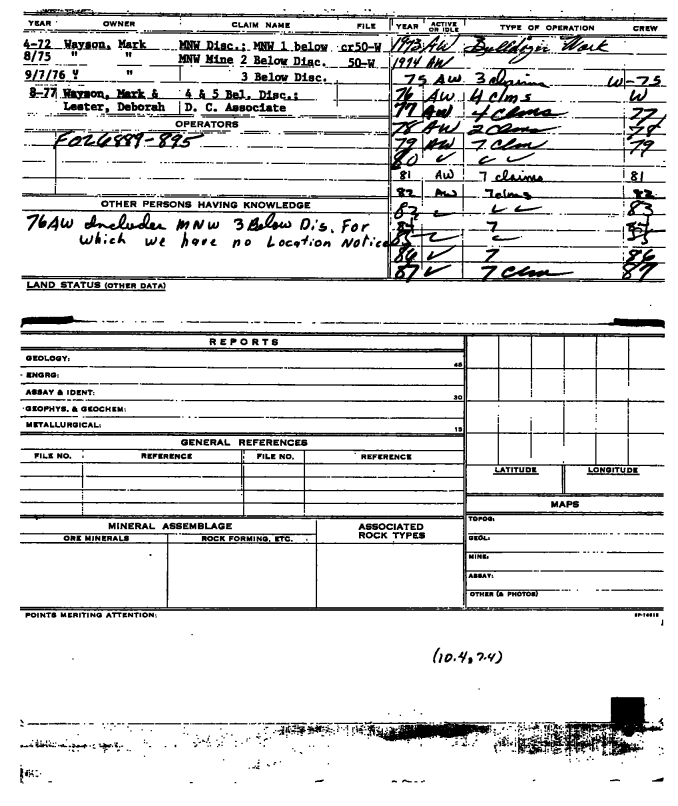 YEAR OWNER CLAIM NAME FILE YEAR ACTIVE OR IDLE TYPE OF OPERATION CREW
4-72 Wayson, Mark MNW Disc.; MNW 1 below cr50-W 1973 AW Bulldozer Work
8/75 " " MNW Mine 2 Below Disc. 50-W 1974 AW
9/7/76 " " 3 Below Disc. 75 AW 3 claims W-75
8-77 Wayson, Mark & 4 & 5 Bel. Disc.; 76 AW 4 clms W
Lester, Deborah D. C. Associate 77 AW 4 Clms 77
OPERATORS 78 AW 2 Clms 78
F026889-895 79 AW 7 Clm 79
80 ✓ ✓ ✓
81 AW 7 claims 81
82 AW 7 clms 82
OTHER PERSONS HAVING KNOWLEDGE 83 ✓ ✓ ✓ 83
76AW Includes MNW 3 Below Dis. For 7
which we have no Location Notice 85 ✓ ✓ 85
86 ✓ 7 86
87 ✓ 7 Clm 87
LAND STATUS (OTHER DATA)
REPORTS
GEOLOGY: 45
ENGRG:
ASSAY & IDENT: 30
GEOPHYS. & GEOCHEM:
METALLURGICAL: 15
GENERAL REFERENCES
FILE NO. REFERENCE FILE NO. REFERENCE
LATITUDE LONGITUDE
MAPS
MINERAL ASSEMBLAGE ASSOCIATED ROCK TYPES
ORE MINERALS ROCK FORMING, ETC.
TOPOG:
GEOL:
MINE:
ASSAY:
OTHER (& PHOTOS)
POINTS MERITING ATTENTION:
(10.4, 7.4)